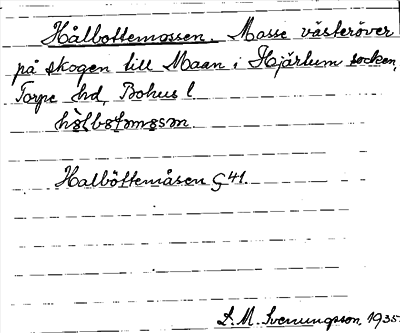 Hålbottemossen. Mosse västeröver
på skogen till Maan i Hjärtum socken,
Torpe hd, Bohus l.
Halböttemåsen G41.
S. M. Svenungsson, 1935.